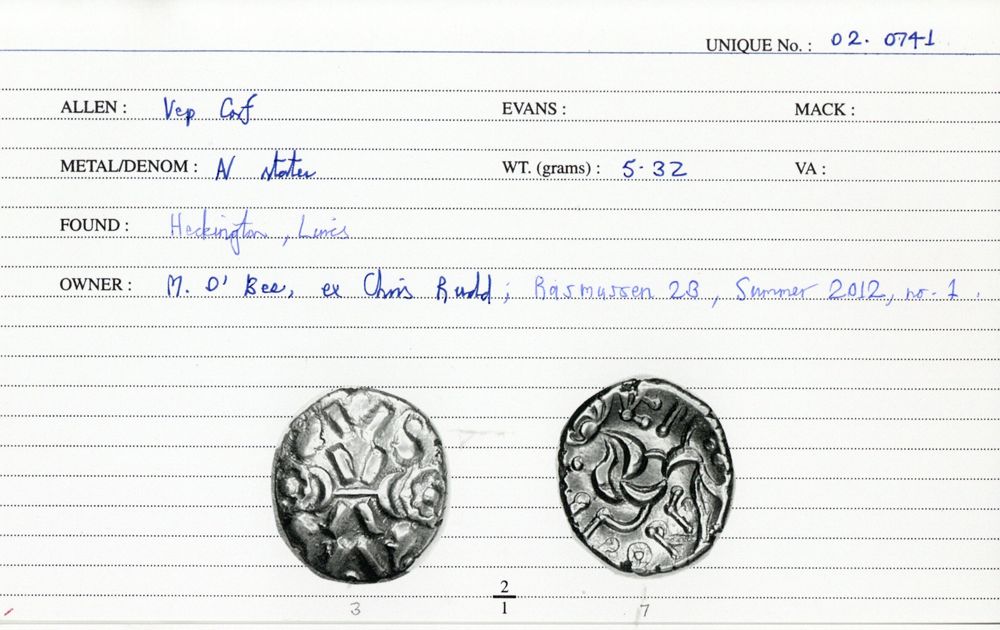 UNIQUE No. : 02. 0741
ALLEN : Vep Corf EVANS : MACK :
METAL/DENOM : AV stater WT. (grams) : 5.32 VA :
FOUND : Heckington, Lincs
OWNER : M. D' Bee, ex Chris Rudd; Rasmussen 23, Summer 2012, no. 1.
2
3 1 7